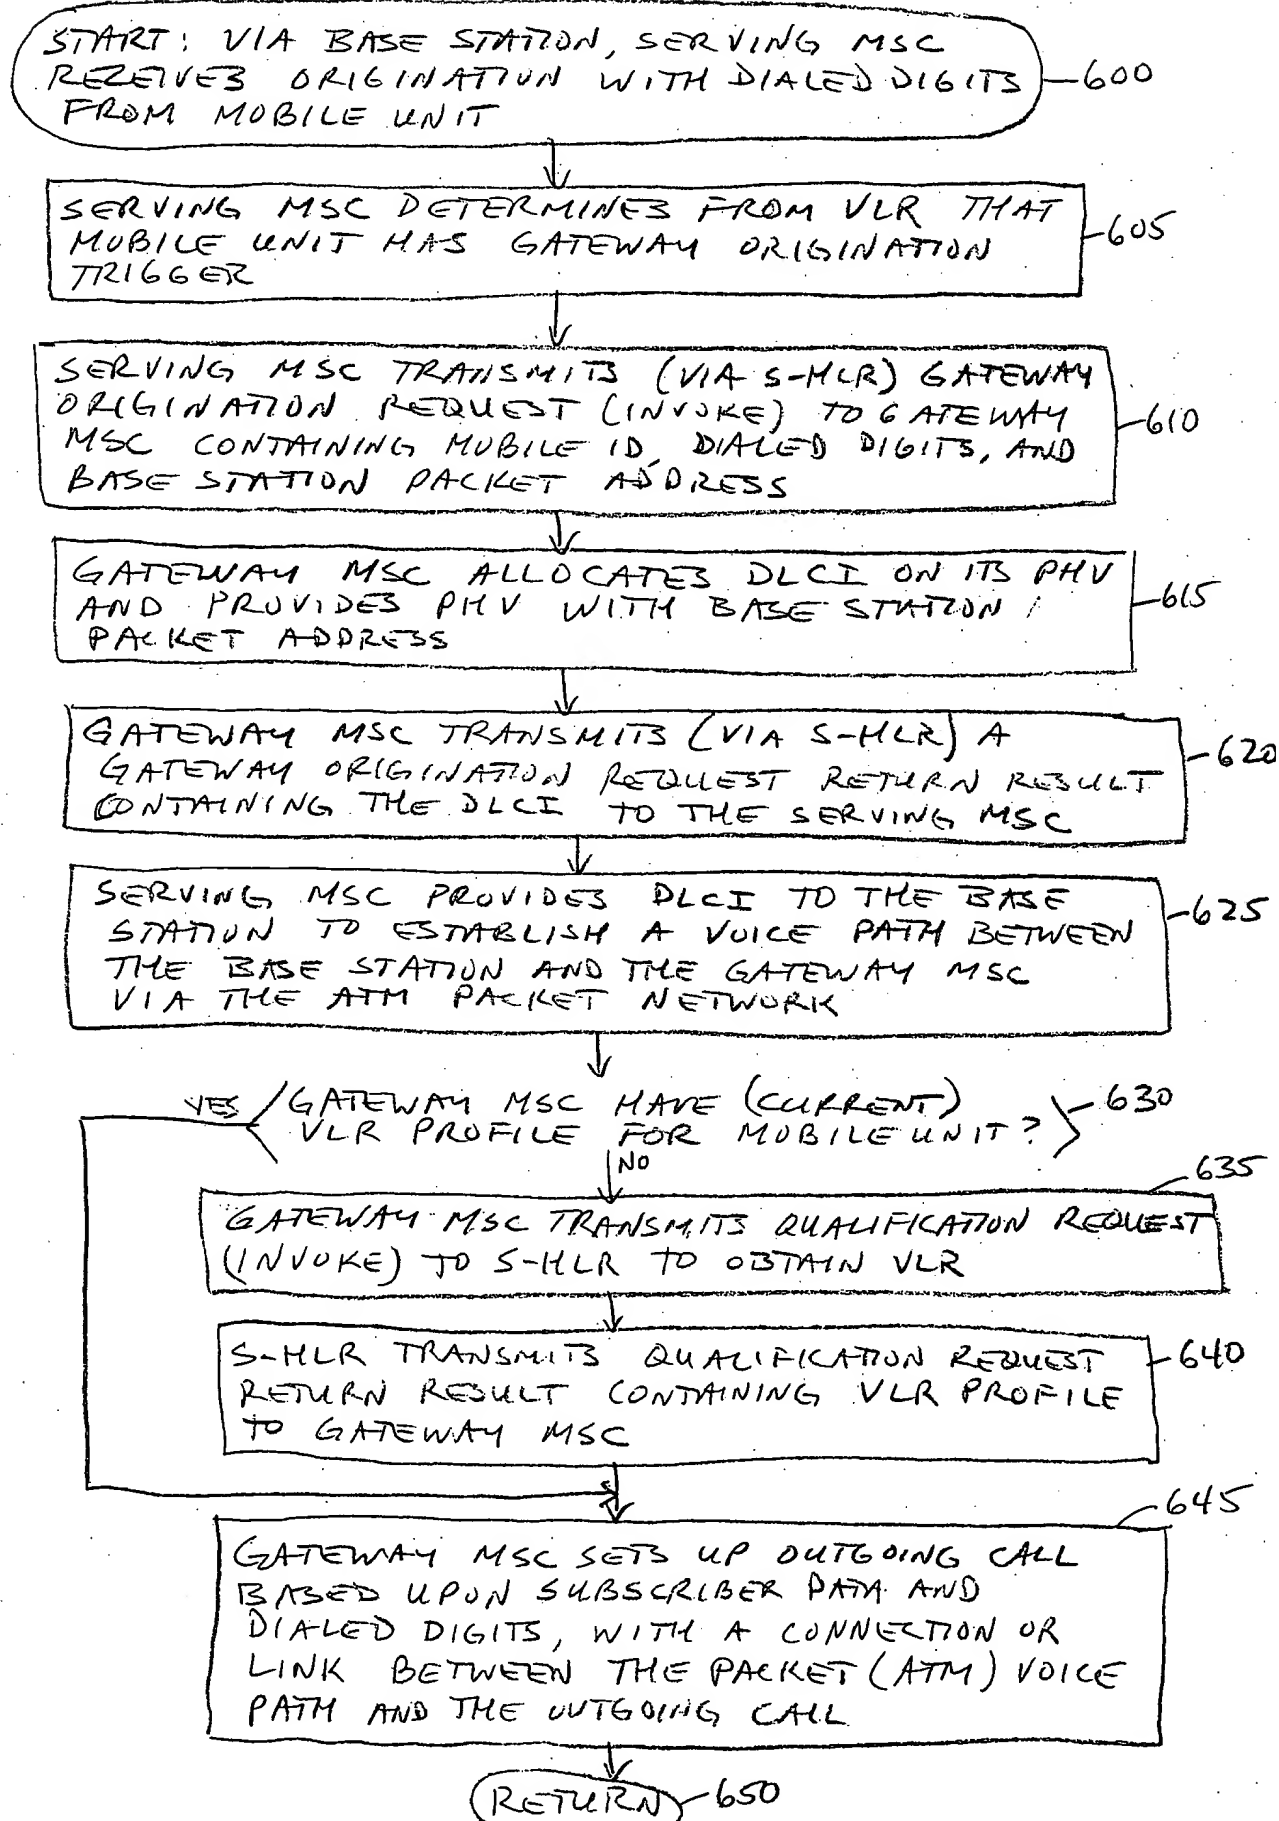 START: VIA BASE STATION, SERVING MSC
RECEIVES ORIGINATION WITH DIALED DIGITS
FROM MOBILE UNIT
600
SERVING MSC DETERMINES FROM VLR THAT
MOBILE UNIT HAS GATEWAY ORIGINATION
TRIGGER
605
SERVING MSC TRANSMITS (VIA S-HLR) GATEWAY
ORIGINATION REQUEST (INVOKE) TO GATEWAY
MSC CONTAINING MOBILE ID, DIALED DIGITS, AND
BASE STATION PACKET ADDRESS
610
GATEWAY MSC ALLOCATES DLCI ON ITS PHV
AND PROVIDES PHV WITH BASE STATION
PACKET ADDRESS
615
GATEWAY MSC TRANSMITS (VIA S-HLR) A
GATEWAY ORIGINATION REQUEST RETURN RESULT
CONTAINING THE DLCI TO THE SERVING MSC
620
SERVING MSC PROVIDES DLCI TO THE BASE
STATION TO ESTABLISH A VOICE PATH BETWEEN
THE BASE STATION AND THE GATEWAY MSC
VIA THE ATM PACKET NETWORK
625
YES
GATEWAY MSC HAVE (CURRENT)
VLR PROFILE FOR MOBILE UNIT?
630
NO
635
GATEWAY MSC TRANSMITS QUALIFICATION REQUEST
(INVOKE) TO S-HLR TO OBTAIN VLR
S-HLR TRANSMITS QUALIFICATION REQUEST
RETURN RESULT CONTAINING VLR PROFILE
TO GATEWAY MSC
640
645
GATEWAY MSC SETS UP OUTGOING CALL
BASED UPON SUBSCRIBER DATA AND
DIALED DIGITS, WITH A CONNECTION OR
LINK BETWEEN THE PACKET (ATM) VOICE
PATH AND THE OUTGOING CALL
RETURN
650